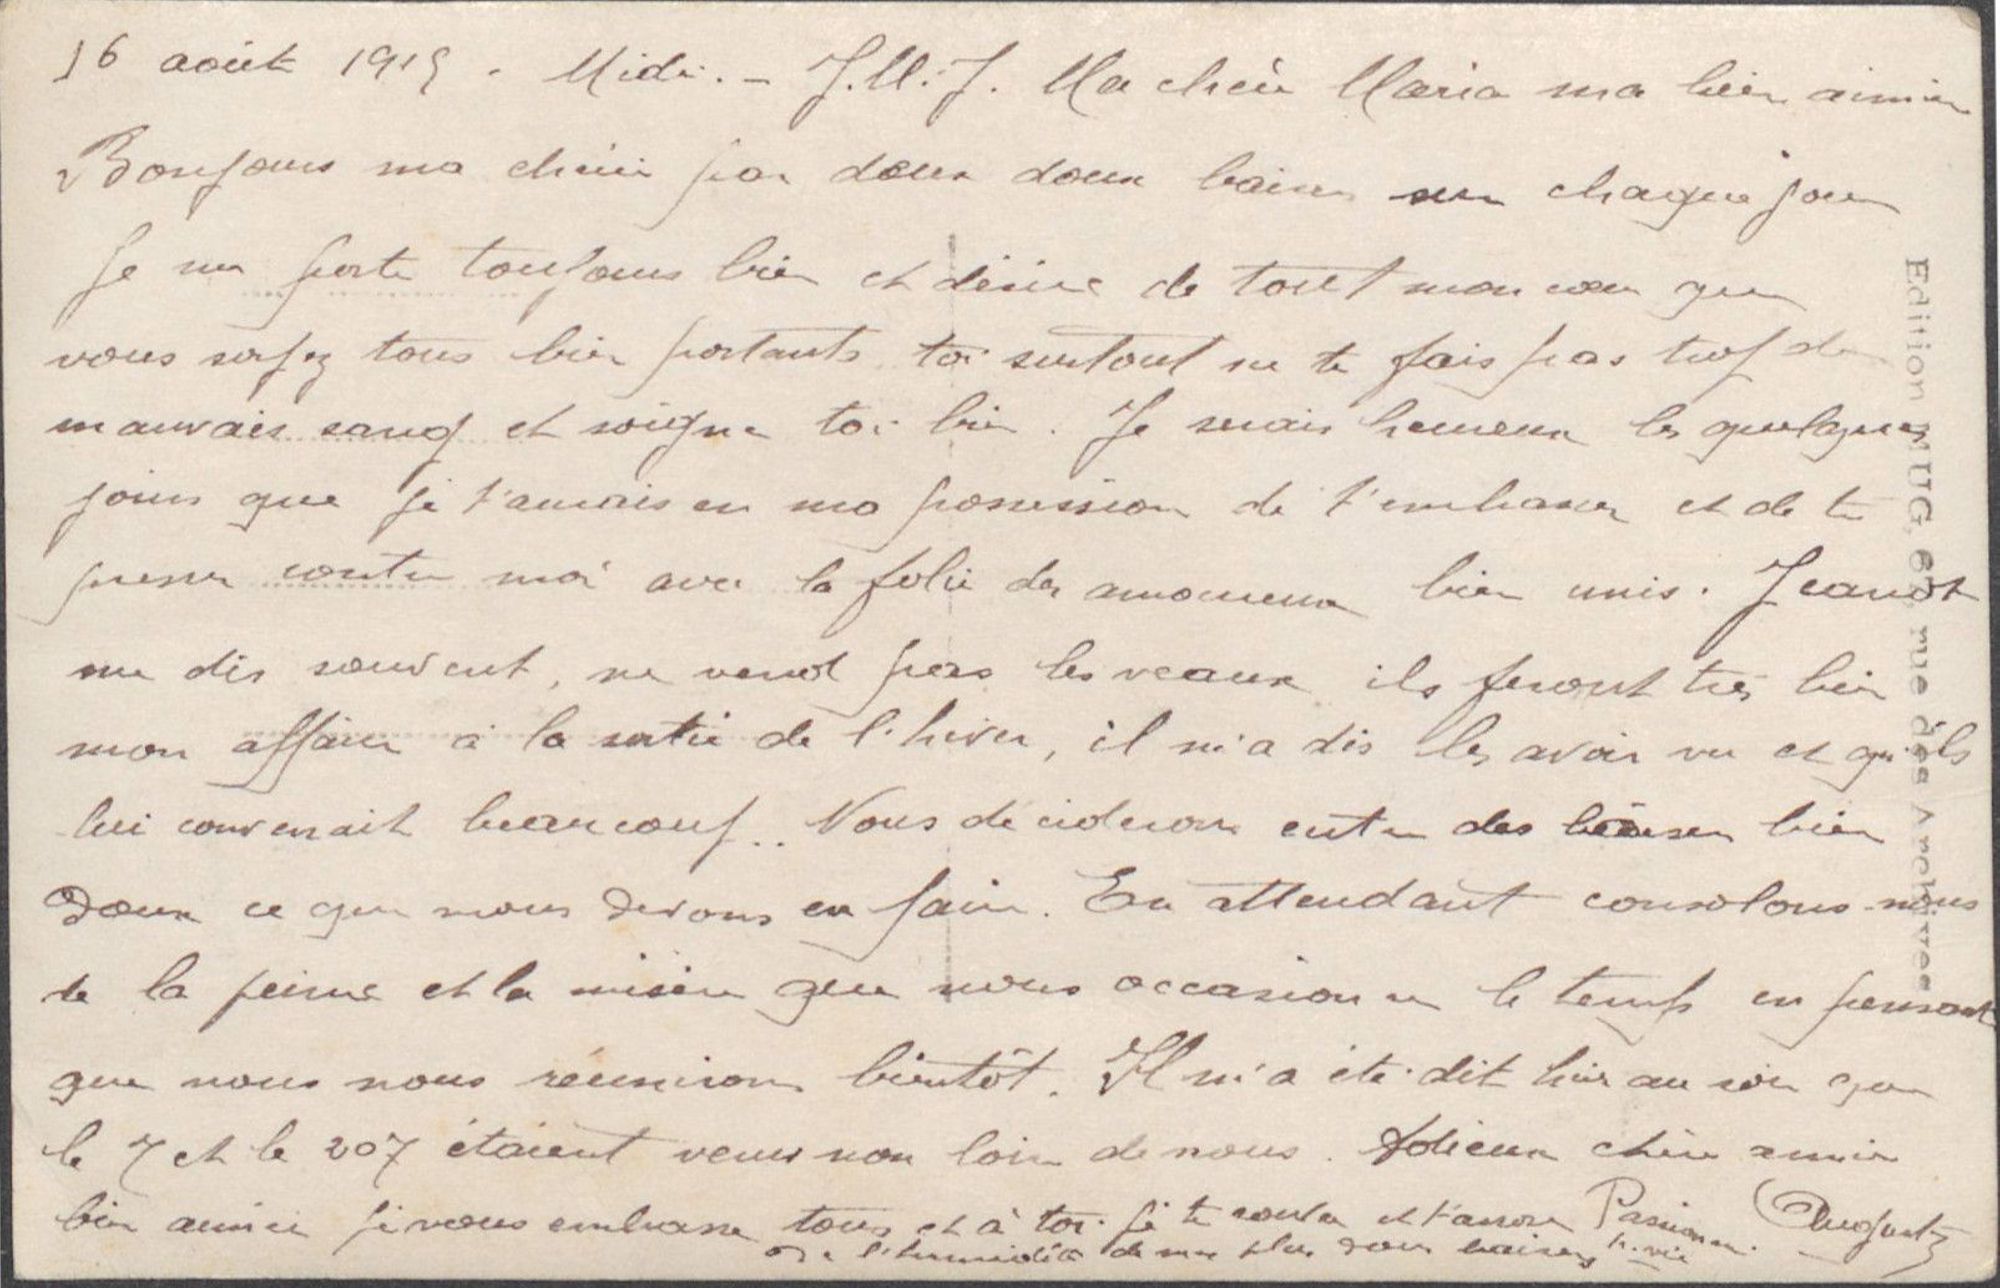 16 août 1915. Midi. – J.M.J. Ma chère Maria ma bien aimée
Bonjours ma chérie par deux doux baisers sur chaque joue
Je me porte toujours bien et désire de tout mon cœur que
vous soyez tous bien portants toi surtout ne te fais pas trop de
mauvais sang et soigne toi bien. Je serais heureux les quelques
jours que je t'aurais en ma possession de t'embrasser et de te
presser contre moi avec la folie des amoureux bien unis. Jeanot
me dis souvent, ne vend pas les veaux ils feront très bien
mon affaire à la sortie de l'hiver, il m'a dis les avoir vu et qu'ils
lui convenait beaucoup.. Nous déciderons entre des baisers bien
doux ce que nous devons en faire. En attendant consolons-nous
de la peine et la misère que nous occasionne le temps en pensant
que nous nous réunirons bientôt. Il m'a été dit hier au soir que
le 7 et le 207 étaient venus non loin de nous. Adieux chère amie
bien aimée je vous embrasse tous et à toi je te couvre et t'arrose Passionn. Auguste
de l'humidité de mes plus doux baisers
Edition MUG, 67, rue des Archives